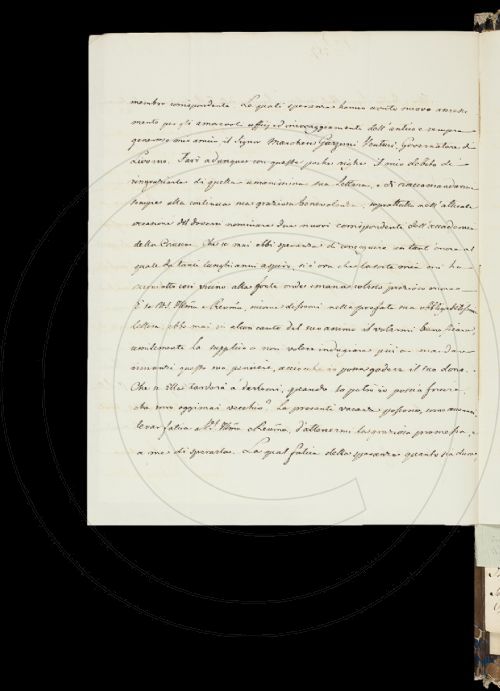 membro corrispondente. Le quali speranze hanno avuto nuovo
mento per gli amorevoli ufficj ed incoraggiamento dell'antico e sempre
generoso mio amico il Signor Marchese Garzoni Venturi, Governatore di
Livorno. Farò adunque con queste poche righe il mio debito di
ringraziarla di quella umanissima sua lettera, e di raccomandarmi
sempre alla continua sua graziosa benevolenza, soprattutto nell'
occasione del doversi nominare due nuovi corrispondenti dell'Accademia
della Crusca. Chè se mai ebbi speranza di conseguire un tant'onore al
quale da tanti lunghi anni aspiro, si è ora che la sorte mia mi ha
così vicino alla fonte onde emana
E se V.S. Illma e Revma, nella sua
lettera, ebbe mai in alcun canto del suo animo il volermi
umilmente la supplico a non volere indugiare più a mandare
innanzi questo suo pensiere, acciocchè io possa godere il suo dono.
Che s'Ella tarderà a darlomi, quando potrò io poscia fruire,
che son oggimai vecchio? Le presenti vacanze possono,
levar fatica a V.S. Illma e Revma, d'attenermi la graziosa promessa,
a me di sperarla. La qual fatica della speranza quanto sia dura,